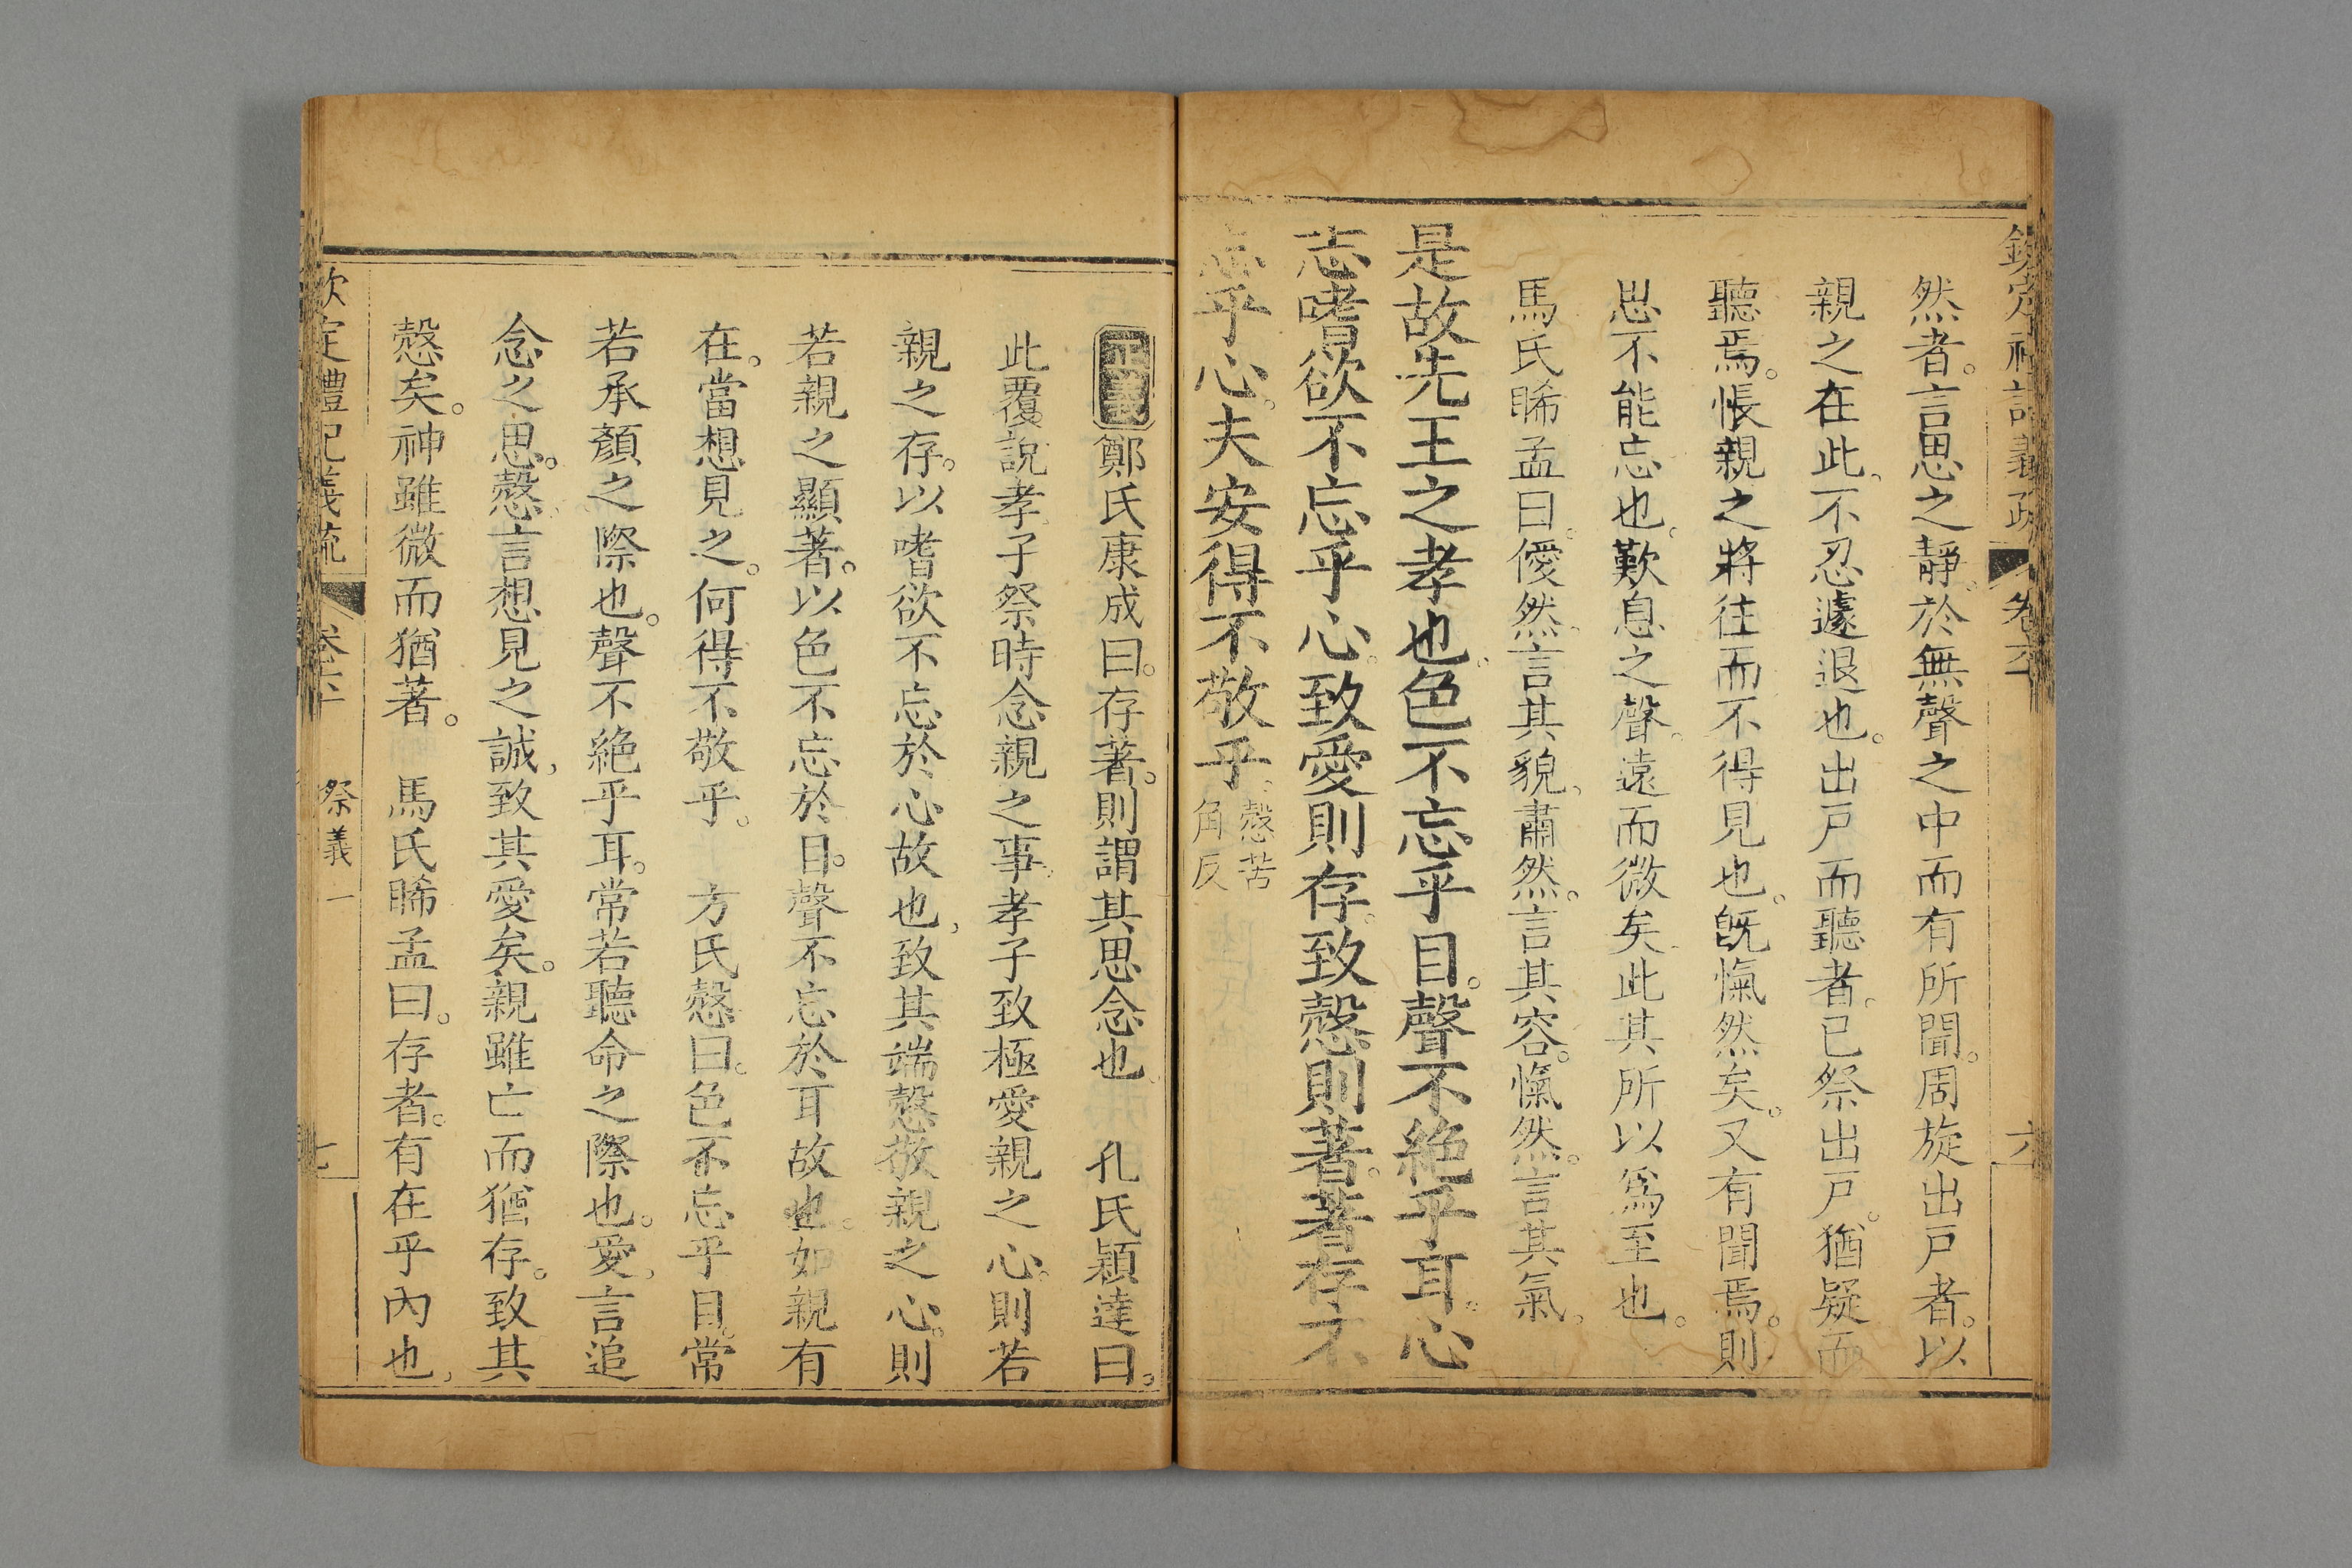 欽定禮記義疏 卷六 六
然者。言思之靜。於無聲之中而有所聞。周旋出戶者。以
親之在此、不忍遽退也。出戶而聽者。已祭出戶。猶疑而
聽焉。悵親之將往而不得見也。既愾然矣。又有聞焉。則
思不能忘也。歎息之聲。遠而微矣。此其所以爲至也。
馬氏睎孟曰。僾然、言其貌、肅然。言其容。愾然。言其氣、
是故先王之孝也。色不忘乎目。聲不絕乎耳。心
志嗜欲不忘乎心。致愛則存。致愨則著。著存不
忘乎心。夫安得不敬乎。愨苦
角反
正義鄭氏康成曰。存著。則謂其思念也、 孔氏穎達曰。
此覆說孝子祭時念親之事。孝子致極愛親之心。則若
親之存。以嗜欲不忘於心故也、致其端愨敬親之心。則
若親之顯著。以色不忘於目。聲不忘於耳故也。如親有
在。當想見之。何得不敬乎。 方氏愨曰。色不忘乎目。常
若承顏之際也。聲不絕乎耳。常若聽命之際也。愛、言追
念之思。愨、言想見之誠、致其愛矣。親雖亡而猶存。致其
愨矣。神雖微而猶著。 馬氏睎孟曰。存者。有在乎內也、
欽定禮記義疏 卷六 祭義一 七